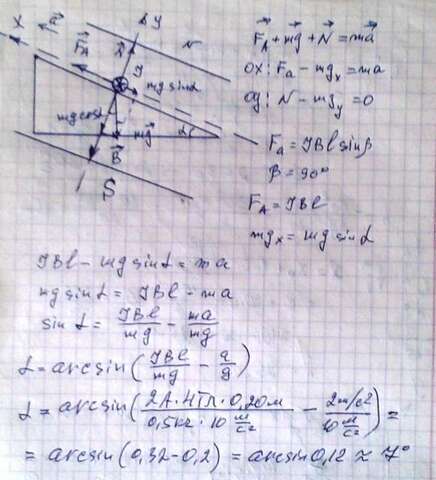 X a⃗ y
F⃗A N⃗ N
I
mg sinα
mg cosα mg⃗ α
B⃗
S
F⃗A + mg⃗ + N⃗ = ma⃗
ox: Fa − mgx = ma
oy: N − mgy = 0
Fa = IBl sinβ
β = 90°
FA = IBl
mgx = mg sinα
IBl − mg sinα = ma
mg sinα = IBl − ma
sinα = IBl/mg − ma/mg
α = arcsin(IBl/mg − a/g)
α = arcsin(2А·4Тл·0,20м / 0,5кг·10 м/с² − 2м/с² / 10 м/с²) =
= arcsin(0,32−0,2) = arcsin0,12 ≈ 7°